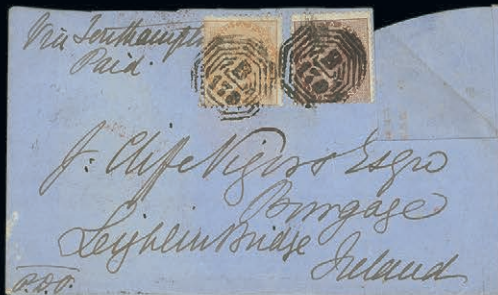 Via Southampton
Paid
B
B
J. Cliffe Vigors Esqre
Burgage
Leighlin Bridge
Ireland
P.D.P.